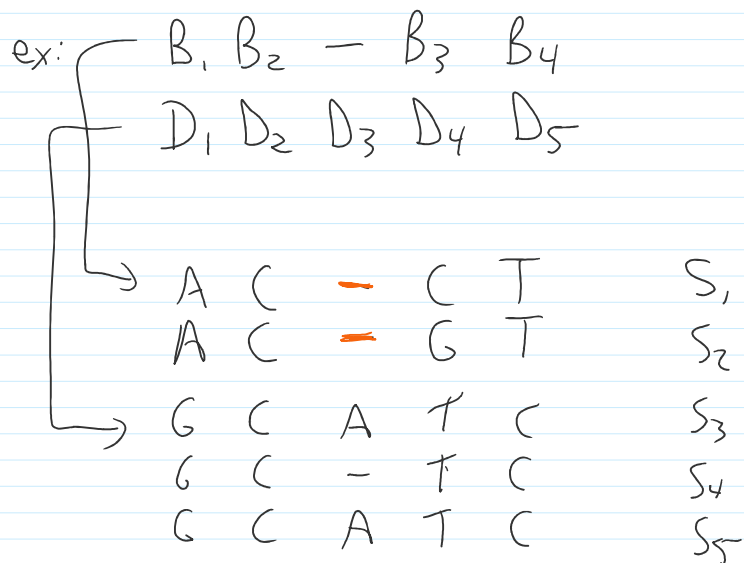 ex: B₁ B₂ - B₃ B₄
D₁ D₂ D₃ D₄ D₅
A C - C T S₁
A C - G T S₂
G C A T C S₃
G C - T C S₄
G C A T C S₅